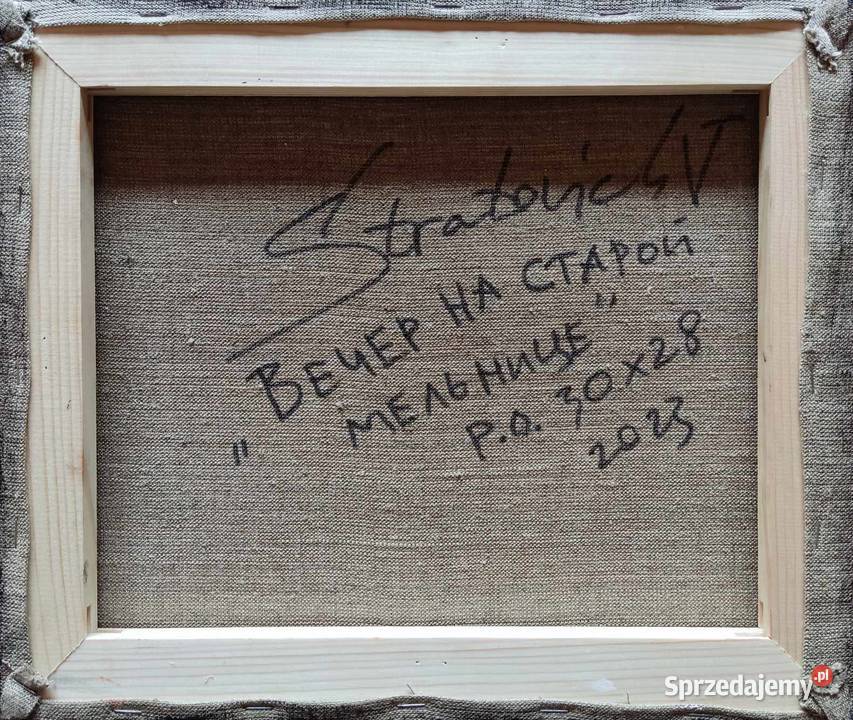 Stratovich V
„Вечер на старой
мельнице"
р.о. 30х28
2023
Sprzedajemy.pl